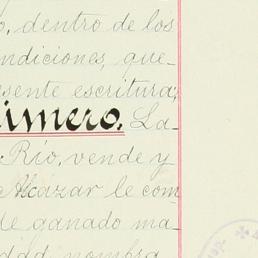 o, dentro de los
ndiciones, que-
esente escritura;
imero. La-
Río, vende y
Alcázar le com
de ganado ma-
edad nombra